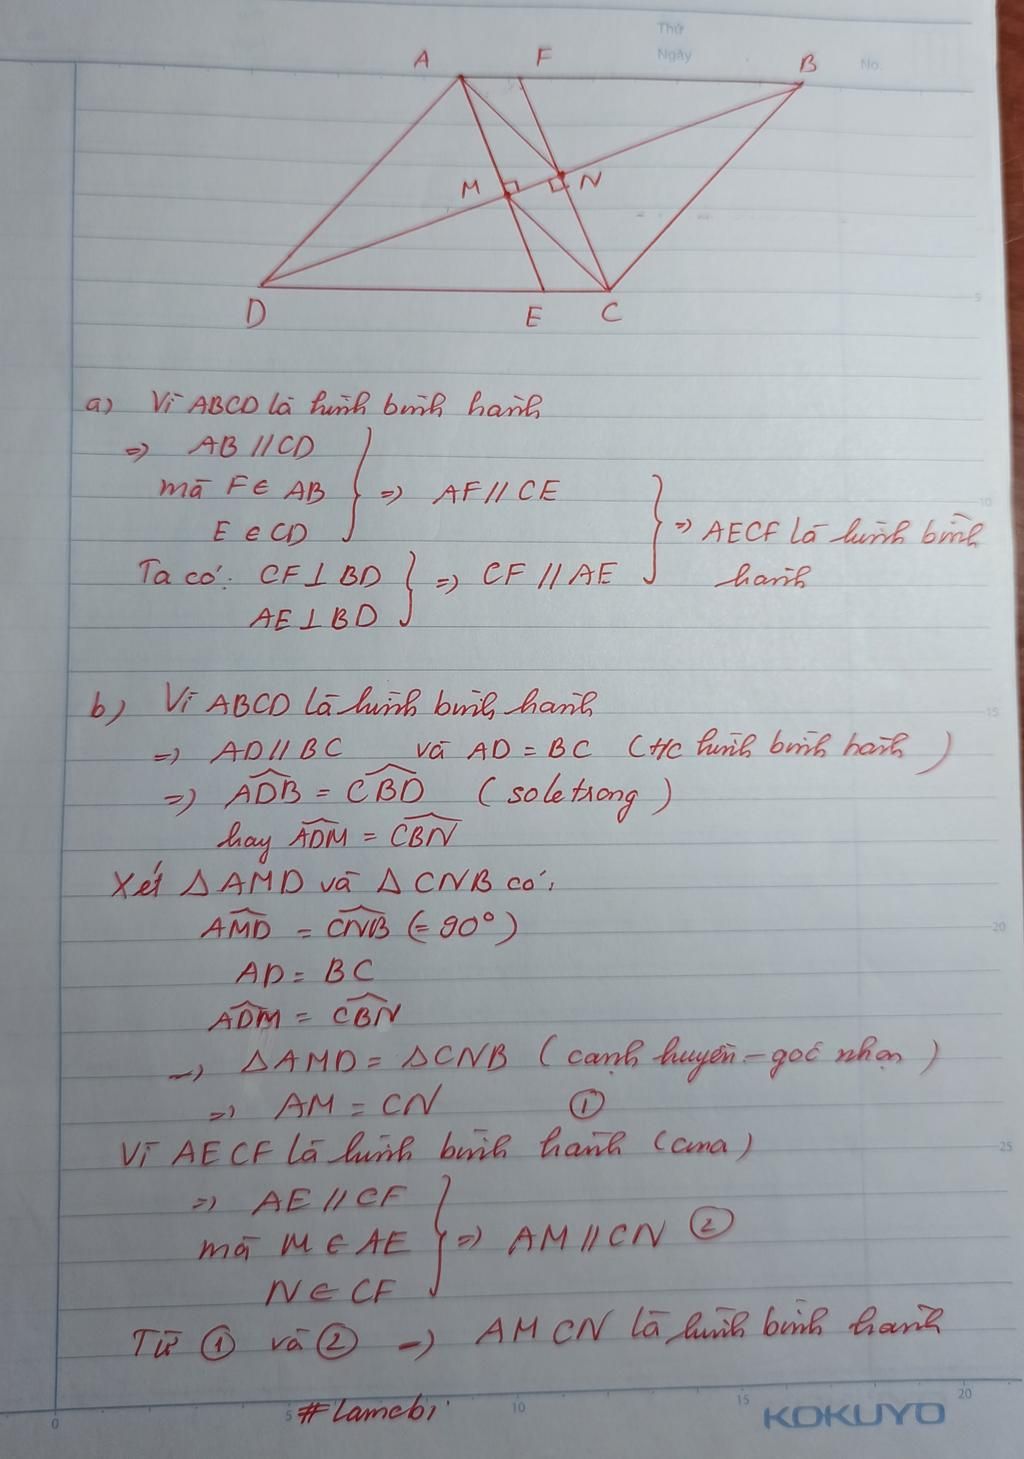 Thứ
Ngày
No.
A F B
M N
D E C
a) Vì ABCD là hình bình hành
=> AB // CD
mà F ∈ AB => AF // CE
E ∈ CD
=> AECF là hình bình hành
Ta có: CF ⊥ BD => CF // AE
AE ⊥ BD
b) Vì ABCD là hình bình hành
=> AD // BC và AD = BC (t/c hình bình hành)
=> ADB = CBD (so le trong)
hay ADM = CBN
Xét Δ AMD và Δ CNB có:
AMD = CNB (= 90°)
AD = BC
ADM = CBN
=> Δ AMD = Δ CNB (cạnh huyền - góc nhọn)
=> AM = CN ①
Vì AECF là hình bình hành (cma)
=> AE // CF
mà M ∈ AE => AM // CN ②
N ∈ CF
Từ ① và ② => AMCN là hình bình hành
#lamcbi
5
10
15
20
25
0 5 10 15 20
KOKUYO